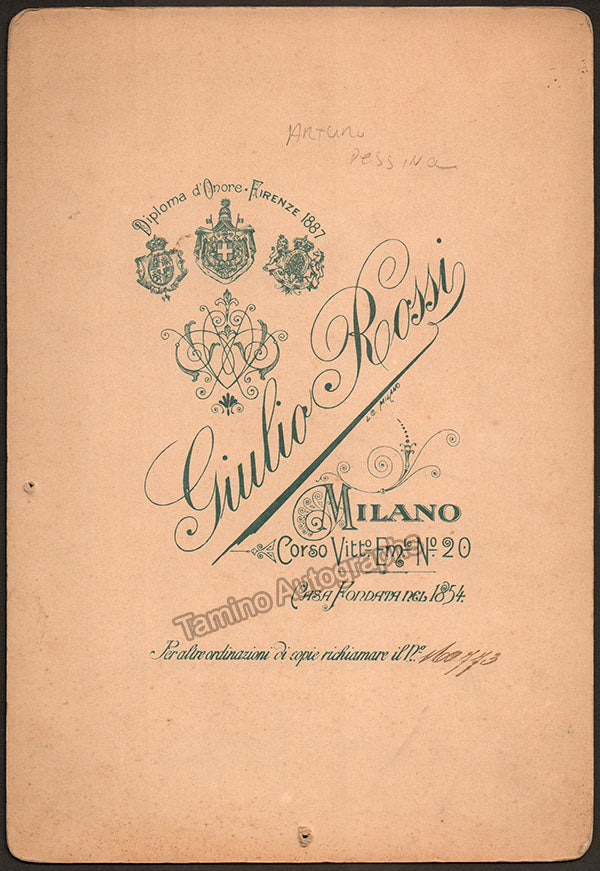 Arturo
Pessina
Diploma d'Onore - FIRENZE 1887
Giulio Rossi
L.B. MILANO
MILANO
Corso Vitto. Emle. No. 20
Tamino Autographs
CASA FONDATA NEL 1854.
Per altre ordinazioni di copie richiamare il No. 160773